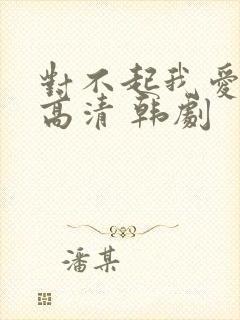 對不起我愛
高清 韩劇
潘某